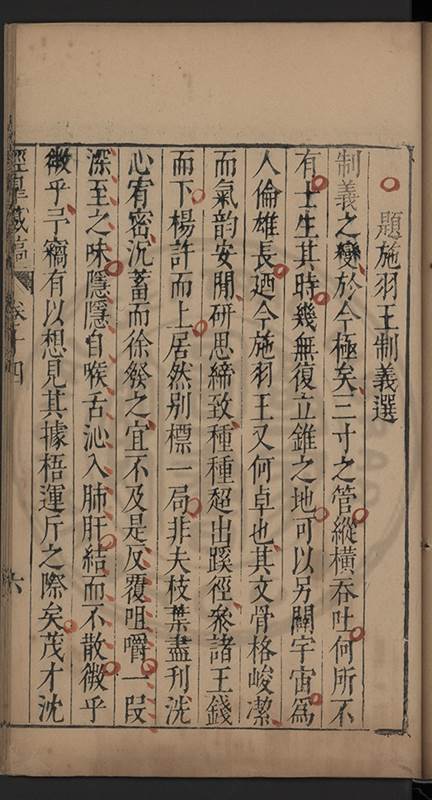 題施羽王制義選
制義之變於今極矣三寸之管縱橫吞吐何所不
有士生其時幾無復立錐之地可以另闢宇宙爲
人倫雄長廼今施羽王又何卓也其文骨格峻潔
而氣韵安閒研思締致種種超出蹊徑叅諸王錢
而下楊許而上居然别標一局非夫枝葉盡刋洗
心宥密沉蓄而徐發之宜不及是反覆咀嚼一叚
深至之味隱隱自喉舌沁入肺肝結而不散微乎
微乎予竊有以想見其據梧運斤之際矣茂才沈
經臯藏稿 卷十四 六